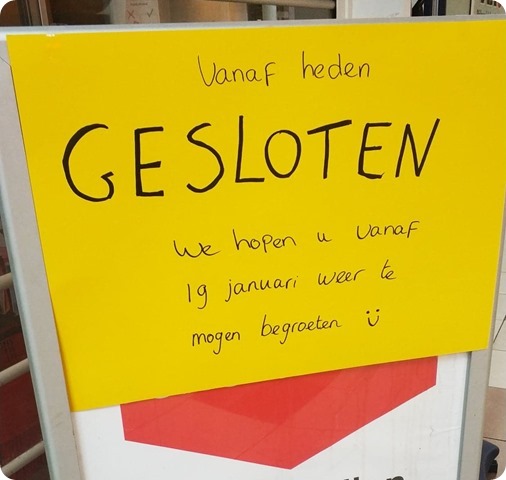 Vanaf heden
GESLOTEN
We hopen u vanaf
19 januari weer te
mogen begroeten ü